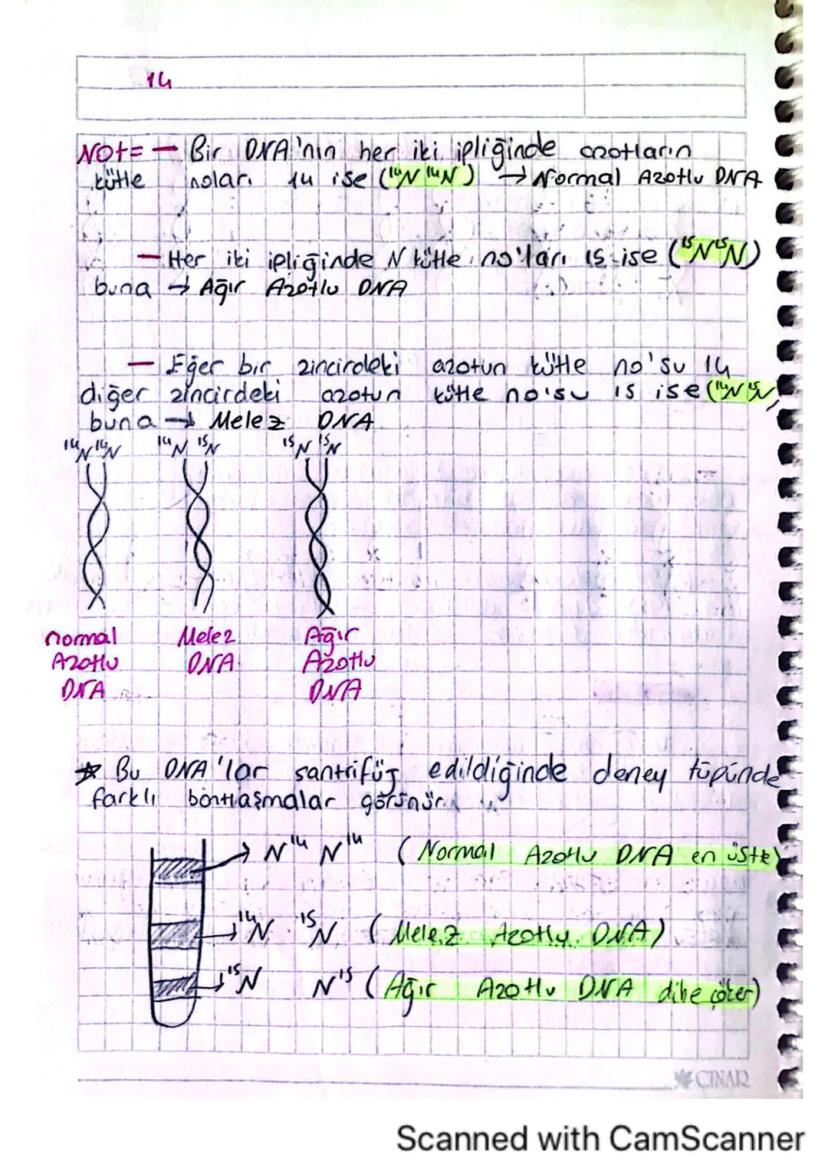 14
NOT= — Bir DNA'nın her iki ipliğinde azotların
kütle noları 14 ise (¹⁴N ¹⁴N) → Normal Azotlu DNA
— Her iki ipliğinde N kütle no'ları 15 ise (¹⁵N¹⁵N)
buna → Ağır Azotlu DNA
— Eğer bir zincirdeki azotun kütle no'su 14
diğer zincirdeki azotun kütle no'su 15 ise (¹⁴N ¹⁵N)
buna → Melez DNA
¹⁴N¹⁴N ¹⁴N ¹⁵N ¹⁵N ¹⁵N
normal Melez Ağır
Azotlu DNA Azotlu
DNA DNA
☆ Bu DNA'lar santrifüj edildiğinde deney tüpünde
farklı bantlaşmalar görünür.
→ N¹⁴ N¹⁴ (Normal Azotlu DNA en üste)
→ ¹⁴N ¹⁵N (Melez Azotlu DNA)
→ ¹⁵N N¹⁵ (Ağır Azotlu DNA dibe çöker)
ÇINAR
Scanned with CamScanner